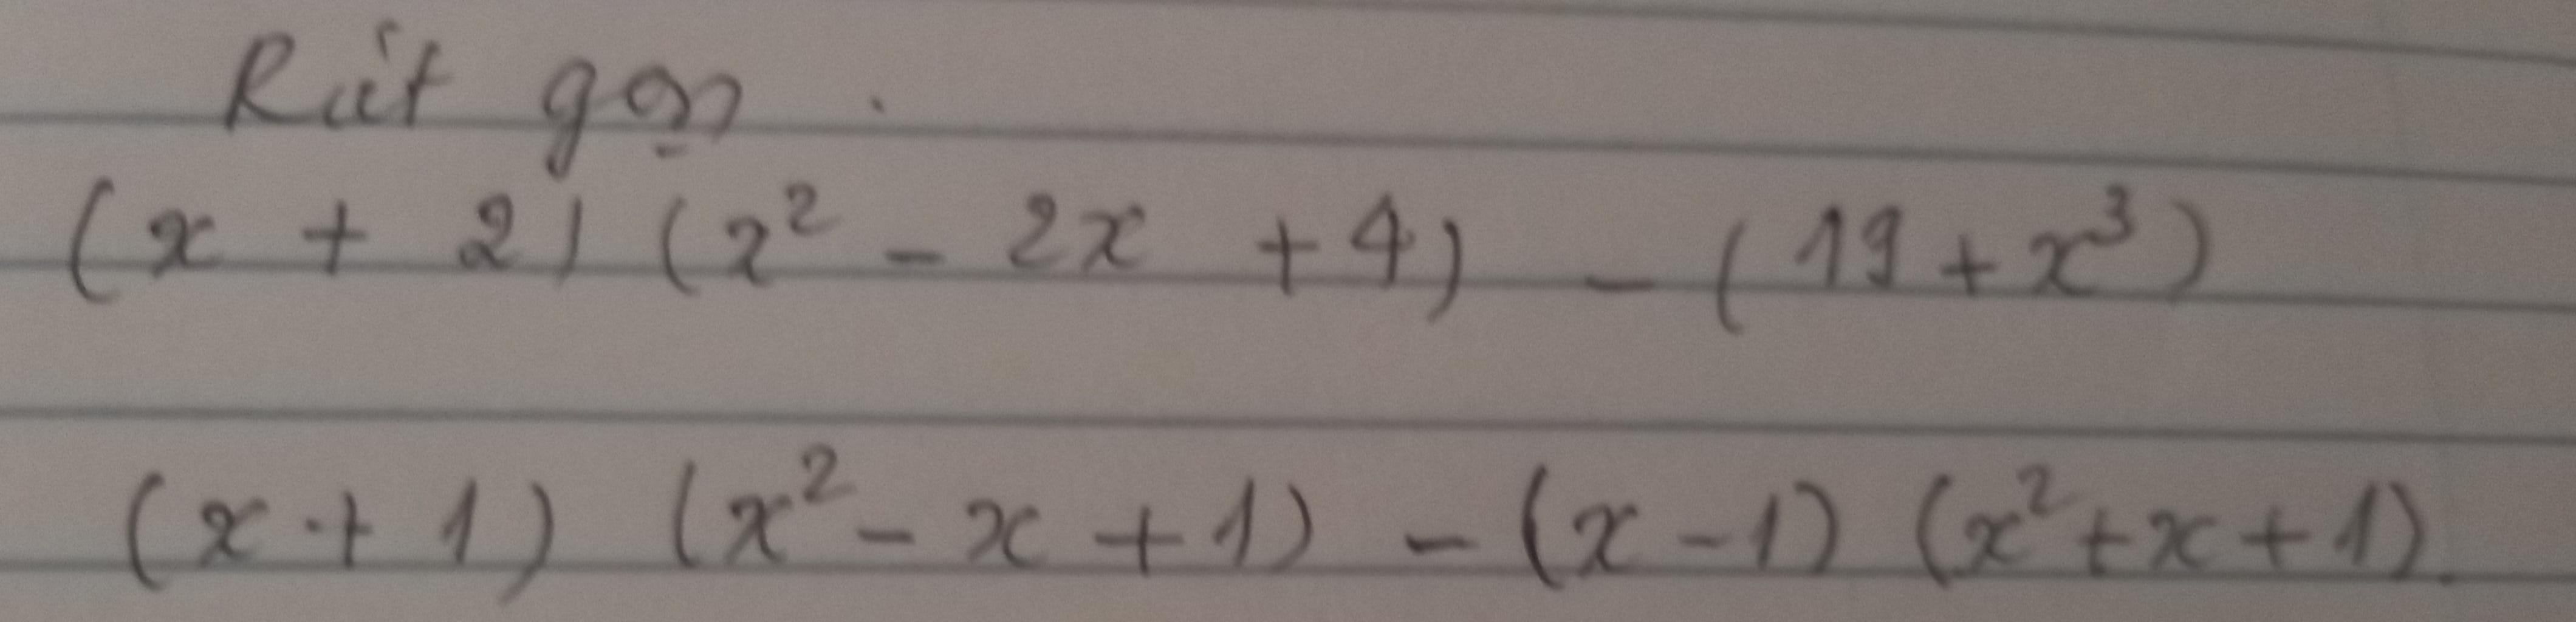 Rút gọn.
(x + 2) (x² - 2x + 4) - (19 + x³)
(x + 1) (x² - x + 1) - (x - 1) (x² + x + 1).